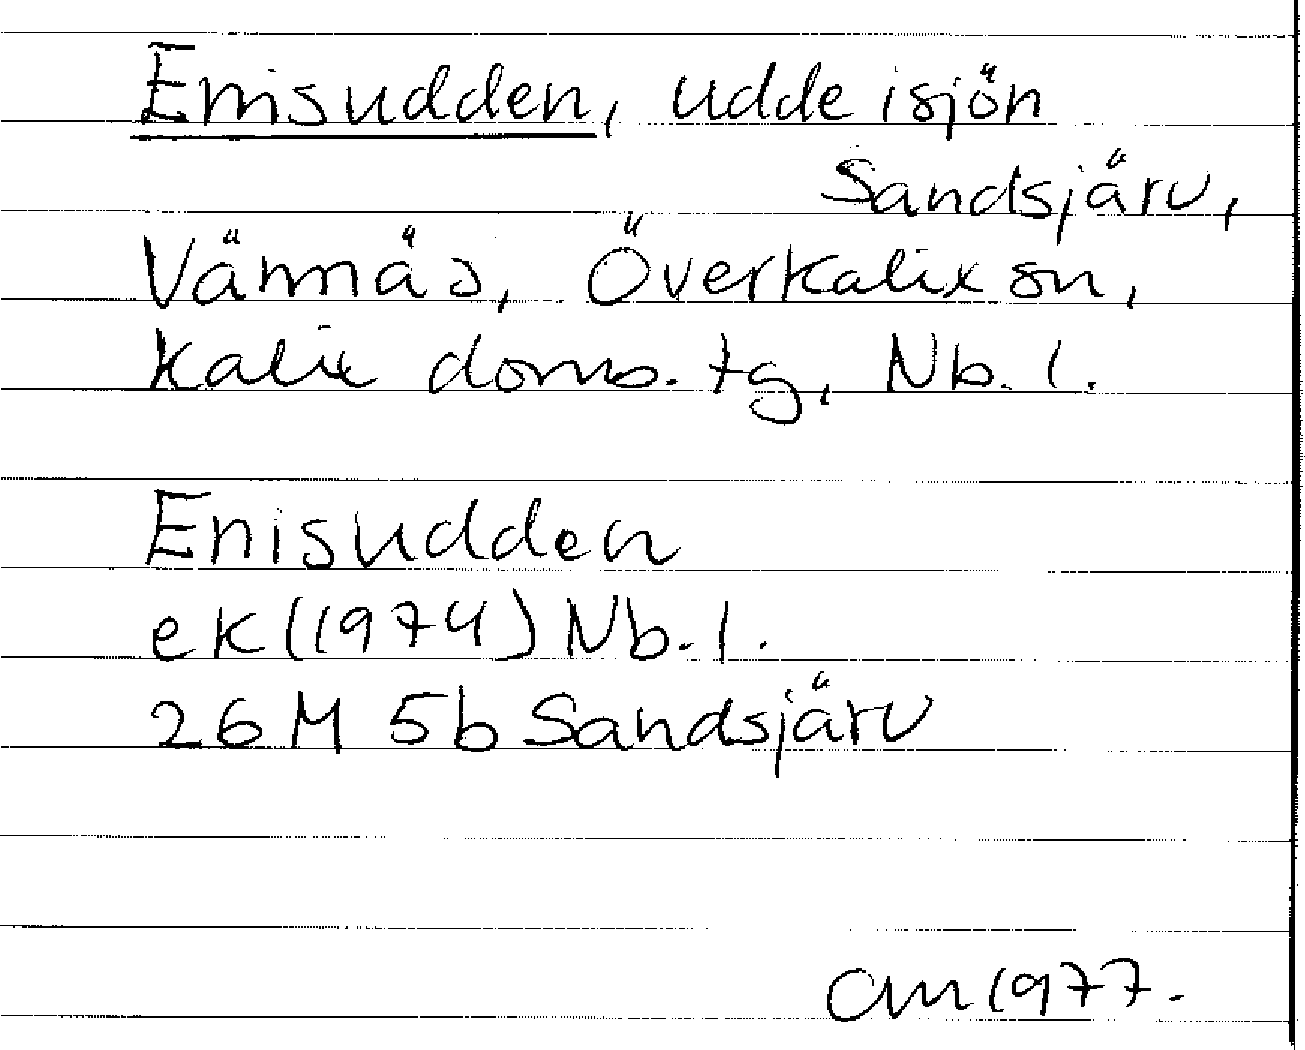 Enisudden, udde i sjön
Sandsjärv,
Vännäs, Överkalix sn,
Kalix doms. tg, Nb. l.
Enisudden
ek (1974) Nb. l.
26 M 5b Sandsjärv
CM 1977.